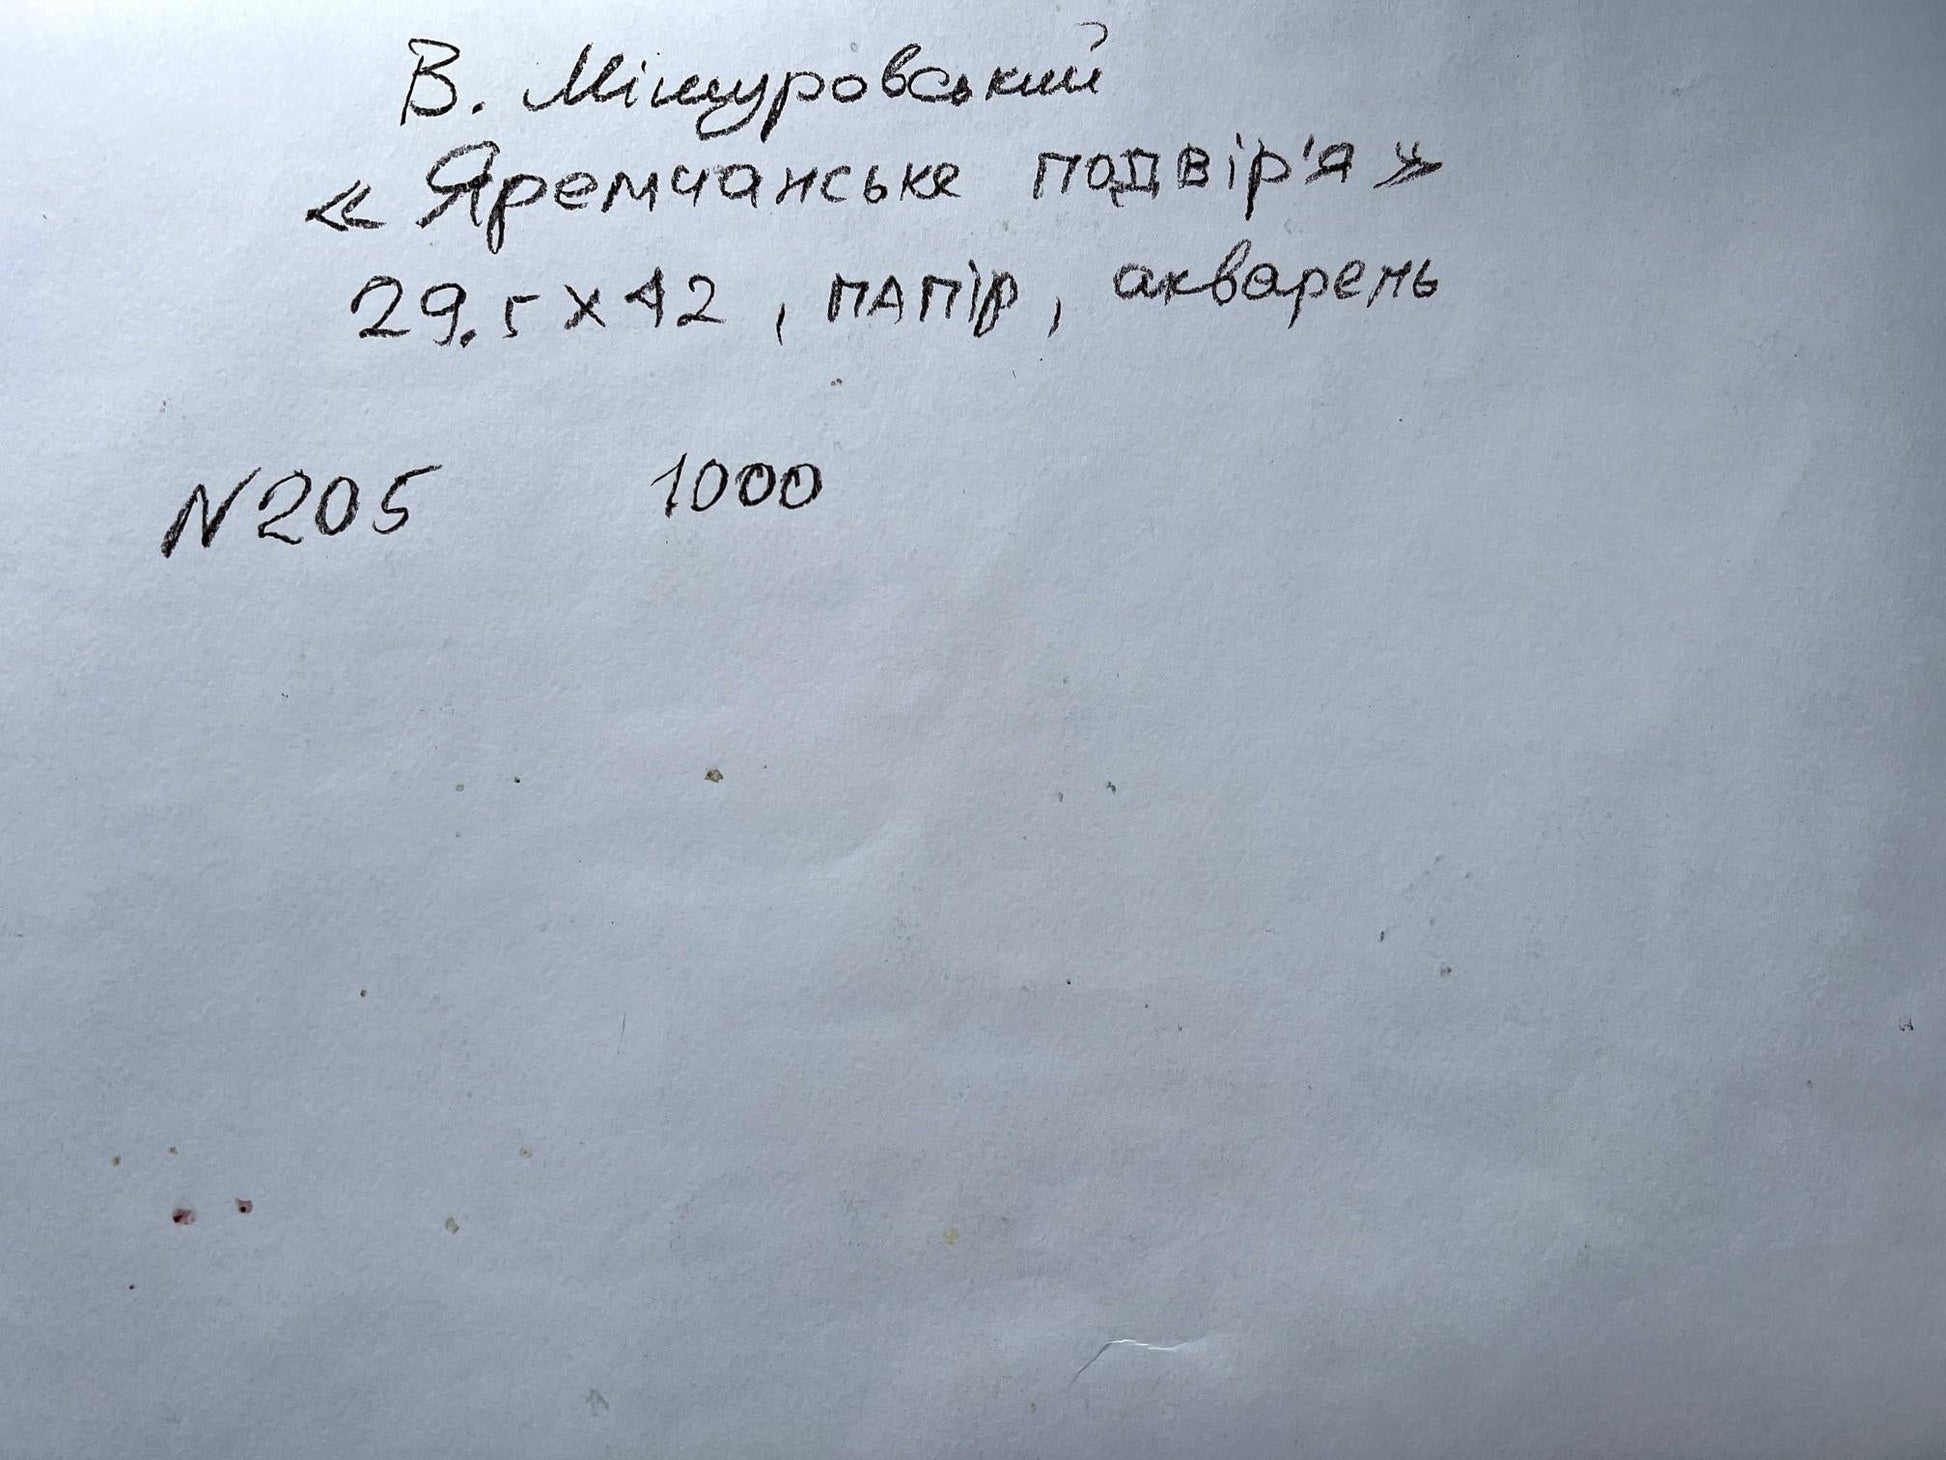 В. Мішуровський
« Яремчанське подвір'я »
29.5 х 42 , папір , акварель
N 205 1000